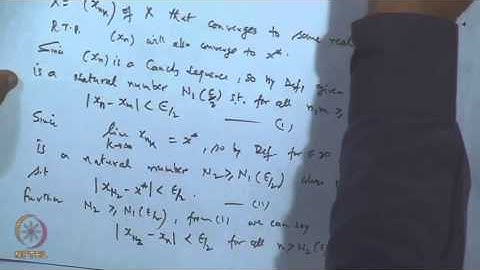 X' = (x_{n_k}) of X that converges to some real
R.T.P. (x_n) will also converge to x*.
Since (x_n) is a Cauchy sequence, so by Def, given
is a natural number N_1(ε/2) s.t. for all n, m ≥
|x_n - x_m| < ε/2 —— (1)
Since lim_{k→∞} x_{n_k} = x*, so by Def for ε>0
is a natural number N_2 ≥ N_1(ε/2)
s.t. |x_{N_2} - x*| < ε/2 —— (11)
further N_2 ≥ N_1(ε/2), from (1) we can say
|x_{N_2} - x_n| < ε/2 for all n > N_2
NPTEL